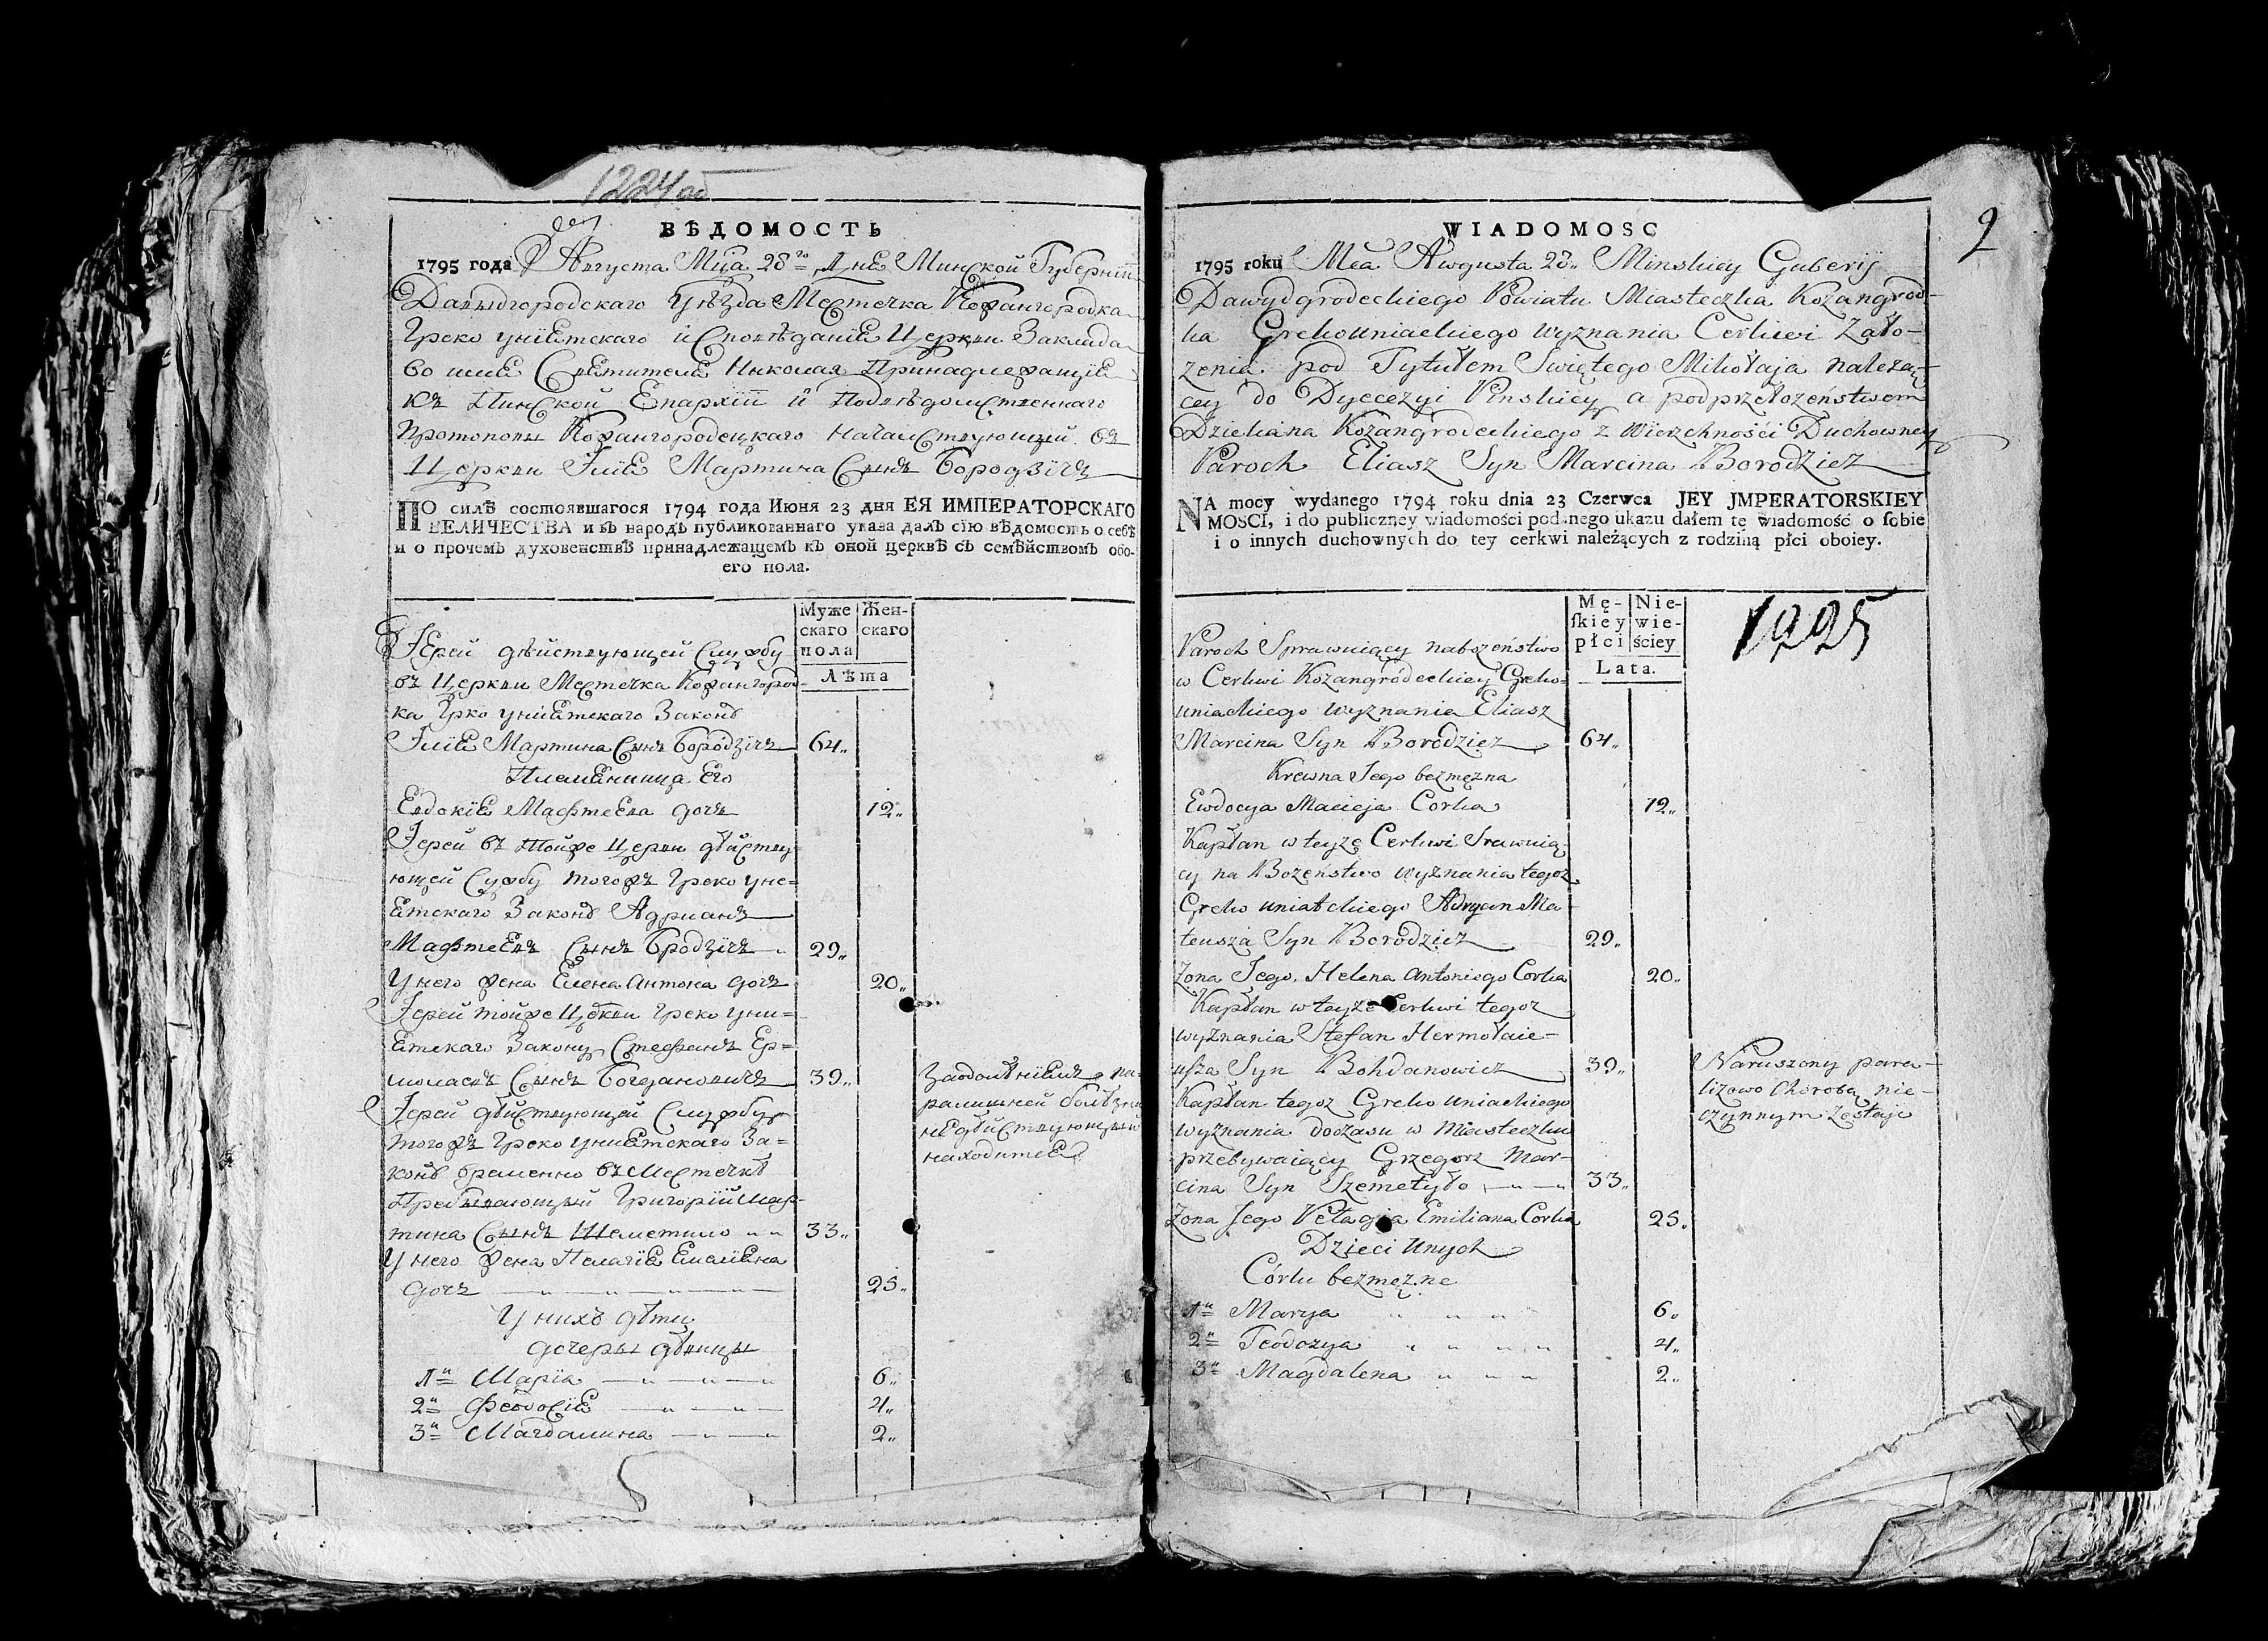 1224 об
ВѢДОМОСТЬ
1795 года Августа Мца 28го Дне Минской Губернїи
Давыдгородского Уѣзда Местечка Кожангородка
Греко унїетскаго исповѣданїе Церкви Заклада
во имѣ Светителе Николая Принадлежащїе
къ Пинской Епархїи и Подвѣдомственнаго
Протопопы Кожангородецкаго Начальствующий въ
Церкви Илїе Мартина Сынъ Бородзїчъ
ПО силѣ состоявшагося 1794 года Июня 23 дня ЕЯ ИМПЕРАТОРСКАГО
ВЕЛИЧЕСТВА и въ народъ публикованнаго указа далъ сїю вѣдомость о себѣ
и о прочемъ духовенствѣ принадлежащемъ къ оной церквѣ съ семѣйствомъ обо-
его пола.
Муже Жен-
скаго скаго
пола
Лѣта
Иерей дѣйствующей Службу
въ Церкви Местечка Кожангород-
ка Грко унїетскаго Законѣ
Илїе Мартина Сынъ Бородзїчъ 64„
Племенница Его
Евдокїе Мафтеева дочъ 12„
Иерей въ тойже Церкви дѣйству-
ющей Сужбу тогожъ Греко уне=
етскаго Законѣ Адрианъ
Мафтеевъ Сынъ Бродзїчъ 29„
У него жена Елена Антона дочъ 20„
Иерей тойже Церкви Греко уни=
етскаго Закону Стефанъ Ер=
молаевъ Сынъ Богдановичъ 39„ Заболѣнїемъ па-
ралижней болѣзни
недѣйствующый
находитсе
Иерей дѣйствующей Службу
тогожъ Греко униетскаго За=
конѣ временно въ местечкѣ
Пребывающый Григорїй Мар-
тина Сынъ Шеметило 33„
У него жена Пелагїе Емелїена
дочъ 25„
У нихъ дѣти
дочеры дѣвицы
1я Марїа 6„
2я Феодосїе 4„
3я Магдалина 2„
2
WIADOMOSC
1795 roku Mca Awgusta 28„ Minskiey Guberij
Dawydgrodeckiego Powiatu Miasteczka Kozangrod-
ka Grekouniackiego wyznania Cerkwi Zało-
zenia pod Tytułem Swiętego Mikołaja nalezą-
cey do Dyecezyi Pinskiey a podprzełozeństwem
Dziekana Kozangrodeckiego z Wierzchności Duchowney
Paroch Eliasz Syn Marcina Borodzicz
NA mocy wydanego 1794 roku dnia 23 Czerwca JEY JMPERATORSKIEY
MOSCI, i do publiczney wiadomości podanego ukazu dałem tę wiadomość o sobie
i o innych duchownych do tey cerkwi należących z rodziną płci oboiey.
Mę- Nie-
skiey wie-
płci ściey
Lata.
1225
Paroch Sprawuiący nabozeństwo
w Cerkwi Kozangródeckiey Greko=
uniackiego wyznania Eliasz
Marcina Syn Borodzicz 64„
Krewna Jego bezmęzna
Ewdocya Macieja Corka 12„
Kapłan w teyze Cerkwi Srawuią-
cy na Bozeństwo wyznania tegoz
Greko uniatckiego Adryan Ma-
teusza Syn Borodzicz 29„
Zona Jego Helena Antoniego Corka 20„
Kapłan w teyze Cerkwi tegoz
wyznania Stefan Hermołaie-
usza Syn Bohdanowicz 39„ Naruszony para-
lizowo Chorobą nie-
czynnym zostaje
Kapłan tegoz Greko uniackiego
wyznania doczasu w Miasteczku
przebywaiący Grzegorz Mar-
cina Syn Szemetyło 33„
Zona Jego Pelagia Emiliana Corka 25„
Dzieci Unych
Córki bezmęzne
1a Marya 6„
2a Teodozya 4„
3a Magdalena 2„